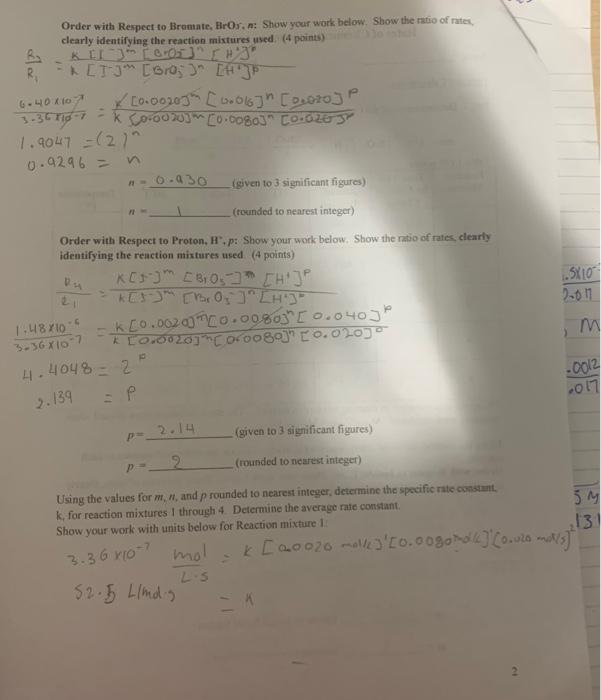 Order with Respect to Bromate, BrO₃⁻, n: Show your work below. Show the ratio of rates,
clearly identifying the reaction mixtures used. (4 points)
R₃/R₁ = K [I⁻]ᵐ [BrO₃⁻]ⁿ [H⁺]ᵖ / K [I⁻]ᵐ [BrO₃⁻]ⁿ [H⁺]ᵖ
6.40 x10⁻⁷ / 3.36 x10⁻⁷ = K [0.0020]ᵐ [0.016]ⁿ [0.020]ᵖ / K [0.0020]ᵐ [0.0080]ⁿ [0.020]ᵖ
1.9047 = (2)ⁿ
0.9296 = n
n = 0.930 (given to 3 significant figures)
n = 1 (rounded to nearest integer)
Order with Respect to Proton, H⁺, p: Show your work below. Show the ratio of rates, clearly
identifying the reaction mixtures used. (4 points)
R₄/R₁ = K [I⁻]ᵐ [BrO₃⁻]ⁿ [H⁺]ᵖ / K [I⁻]ᵐ [BrO₃⁻]ⁿ [H⁺]ᵖ
1.48 x10⁻⁶ / 3.36 x10⁻⁷ = K [0.0020]ᵐ [0.0080]ⁿ [0.040]ᵖ / K [0.0020]ᵐ [0.0080]ⁿ [0.020]ᵖ
4.4048 = 2ᵖ
2.139 = P
p = 2.14 (given to 3 significant figures)
p = 2 (rounded to nearest integer)
Using the values for m, n, and p rounded to nearest integer, determine the specific rate constant,
k, for reaction mixtures 1 through 4. Determine the average rate constant.
Show your work with units below for Reaction mixture 1:
3.36 x10⁻⁷ mol/L·s = K [0.0020 mol/L]¹ [0.0080 mol/L]¹ [0.020 mol/s]²
52.5 L/mol·s = K
2
.5x10⁻
2.017
m
.0012
.017
5 M
131